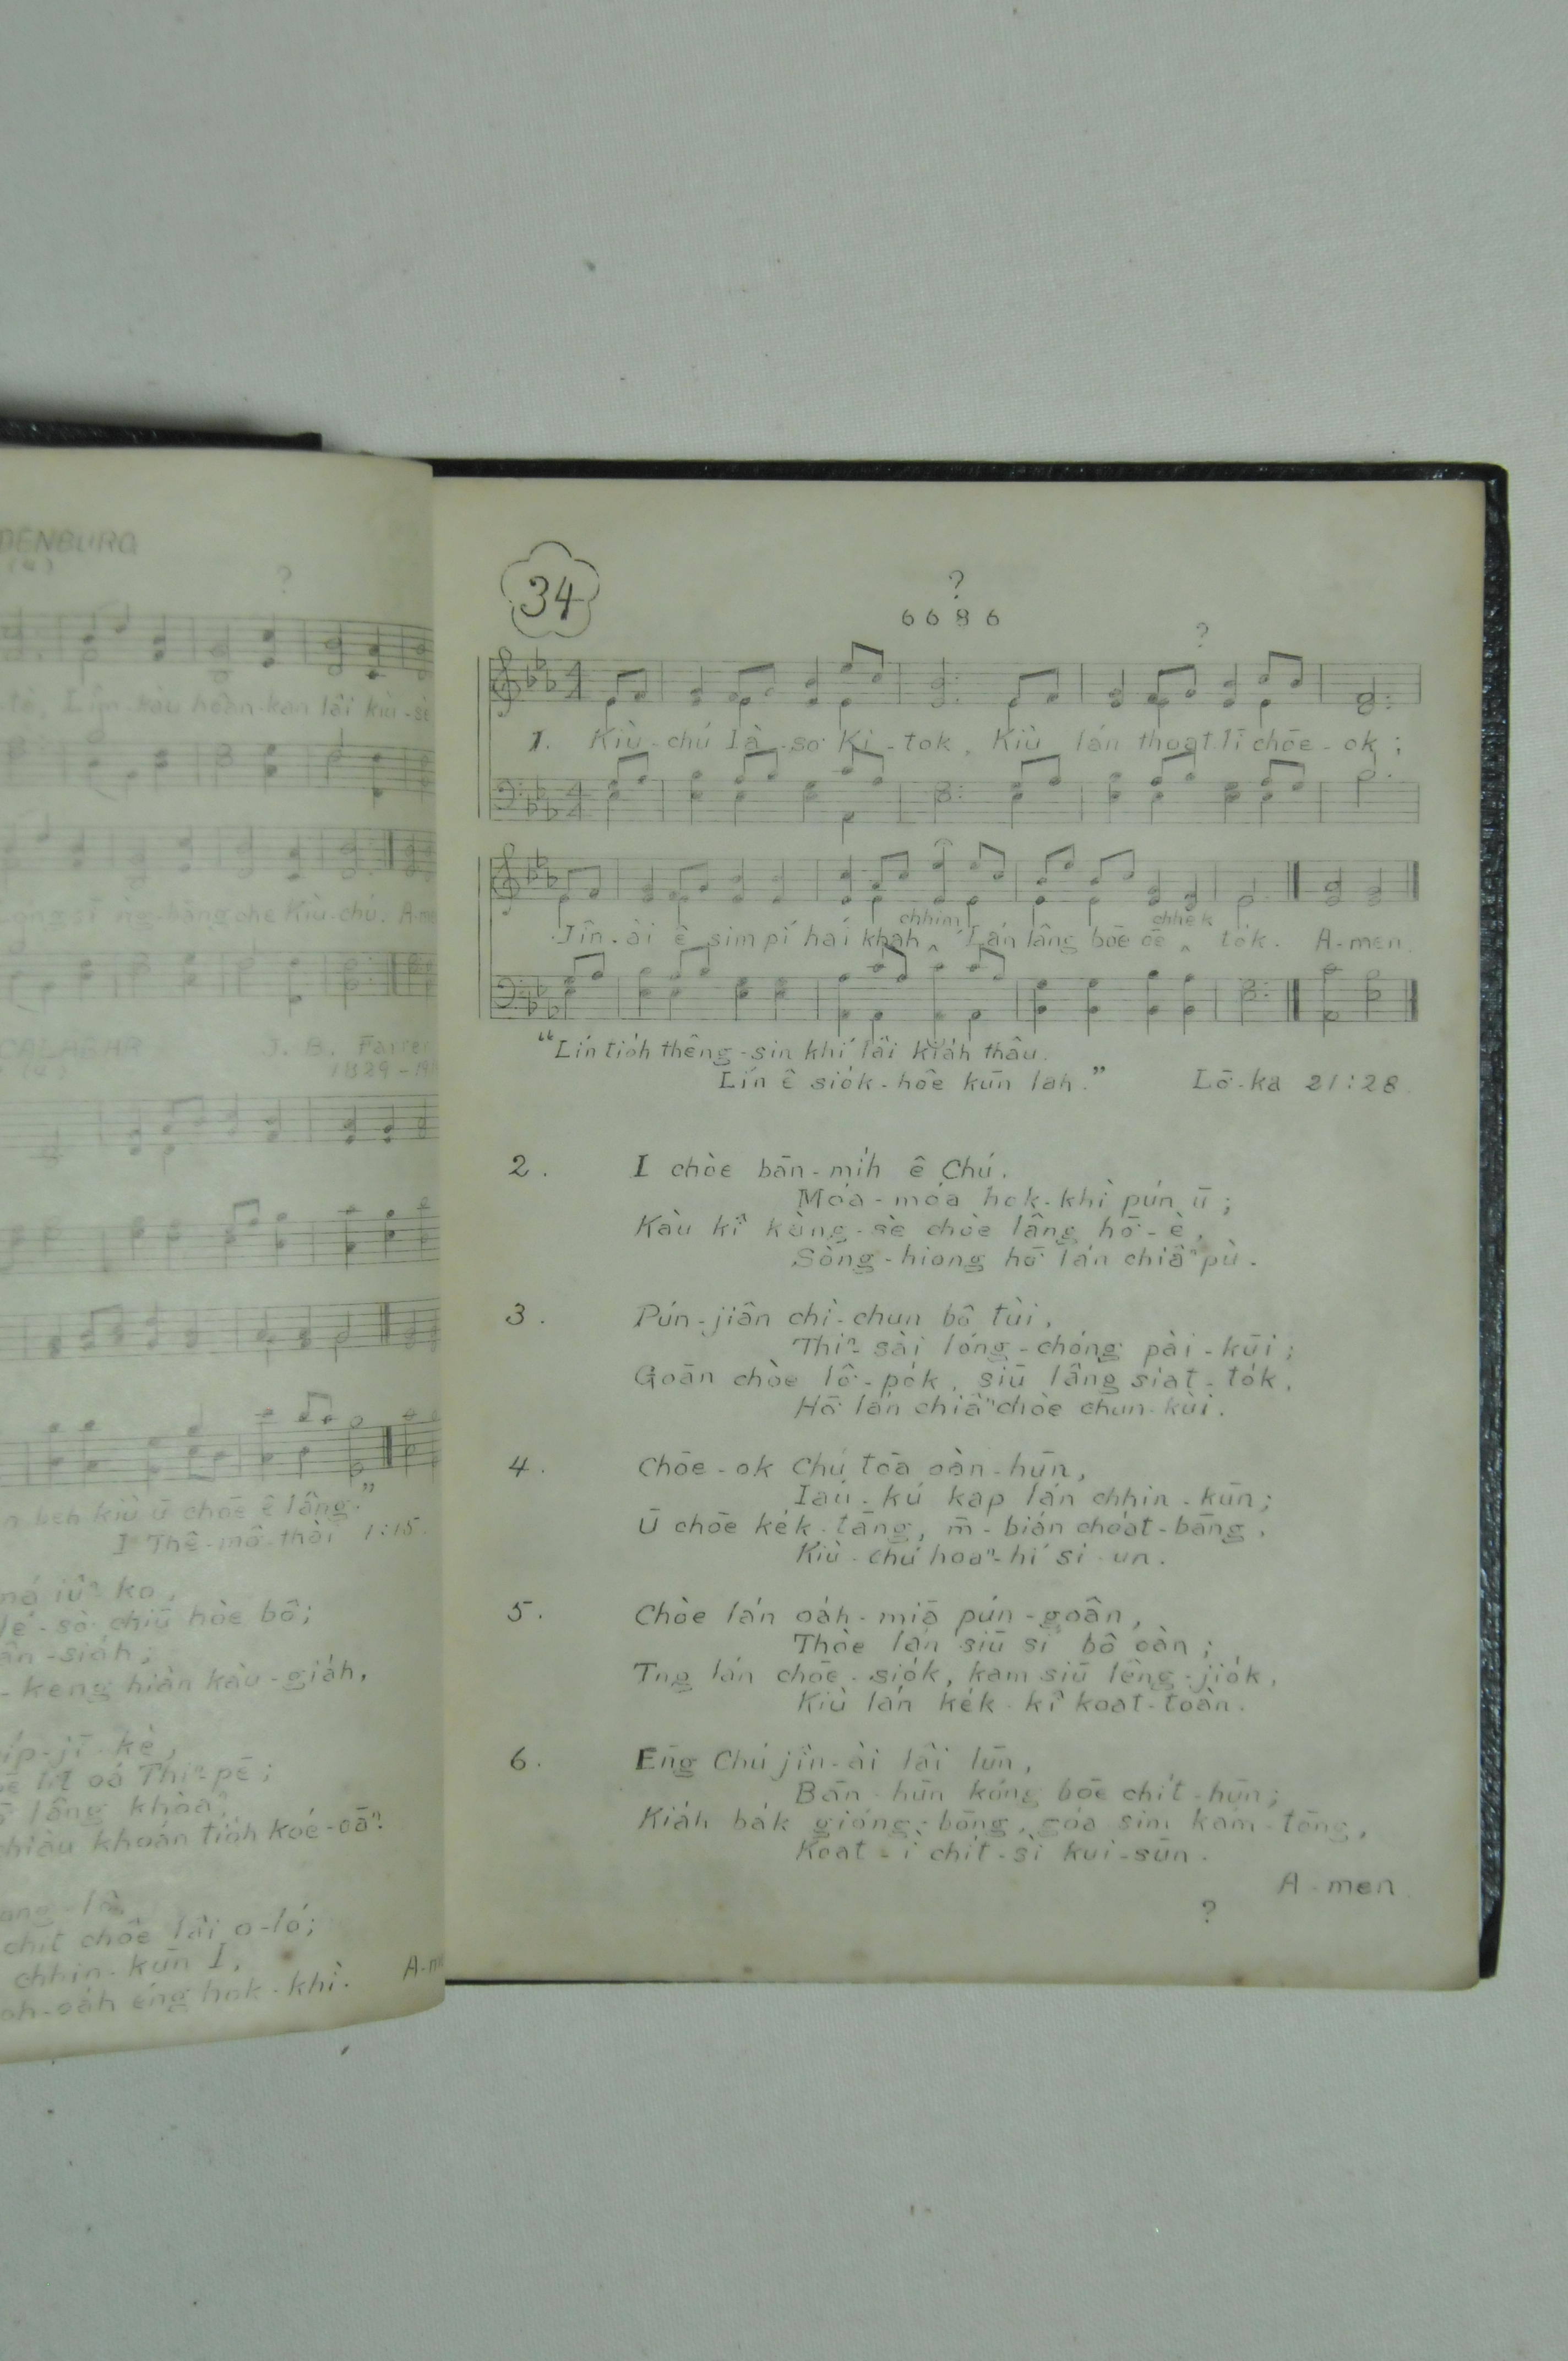 DENBURG
(4)
?
-tè, Lîm-kàu hoàn-kan lâi kiù-sè
ong sī ǹg-bāng che Kiù-chú. A-me
CALABAR J. B. Farrer
(4) 1829-19
n beh kiù ū chōe ê lâng."
I Thê-mô͘-thài 1:15.
iûⁿ ko,
le-sò͘ chiū hòe bô;
ân-siáh;
-keng hiàn kàu-giáh,
íp-jī-kè,
lit oá Thiⁿ-pē;
lâng khòaⁿ,
chiàu khoán tio̍h koé-oāⁿ.
chit chōe lâi o-ló;
chhin-kūn I,
oh-oáh éng hok-khì. A-m
34
?
6 6 8 6
?
1. Kiù-chú Iâ-so͘ Ki-tok, Kiù lán thoat-lī chōe-ok;
Jîn-ài ê sim pí hái khah ‸ chhim, Lán lâng bōe ōe ‸ chhek to̍k. A-men.
"Lín tio̍h thêng-sin khí lâi kiáh thâu.
Lín ê sio̍k-hôe kūn lah." Lō͘-ka 21:28
2. I chòe bān-mi̍h ê Chú,
Móa-móa hok-khì pún ū;
Kàu kî kàng-sè chòe lâng hō͘-è,
Sòng-hiong hō͘ lán chiâⁿ pù.
3. Pún-jiân chì-chun bô tùi,
Thiⁿ-sài lóng-chóng pài-kūi;
Goān chòe lô͘-po̍k, siū lâng siat-to̍k,
Hō͘ lán chiâⁿ chòe chun-kùi.
4. Chōe-ok Chú tōa oàn-hūn,
Iáu-kú kap lán chhin-kūn;
Ū chōe ke̍k-tāng, m̄-bián choa̍t-bāng,
Kiù-chú hoaⁿ-hí si-un.
5. Chòe lán oa̍h-miā pún-goân,
Thòe lán siū sí bô oàn;
Tng lán chōe-sio̍k, kam siū lêng-jio̍k,
Kiù lán ke̍k-kî koat-toàn.
6. Eng Chú jîn-ài lâi lūn,
Bān-hūn kóng bōe chi̍t-hūn;
Kia̍h ba̍k gióng-bōng, góa sim kám-tōng,
Koat-ì chi̍t-sì kui-sūn.
A-men
?